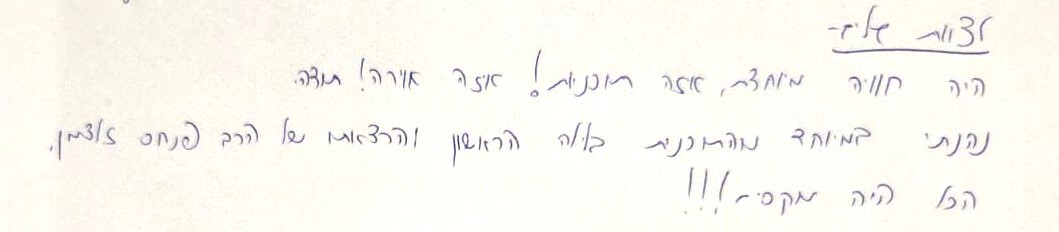 לצוות שלי-
היה חוויה מיוחדת, איזה תוכניות! איזה אוירה! תודה.
נהנתי במיוחד מהתוכנית בלילה הראשון והרצאתו של הרב פנחס זלצמן.
הכל היה מקסים!!!